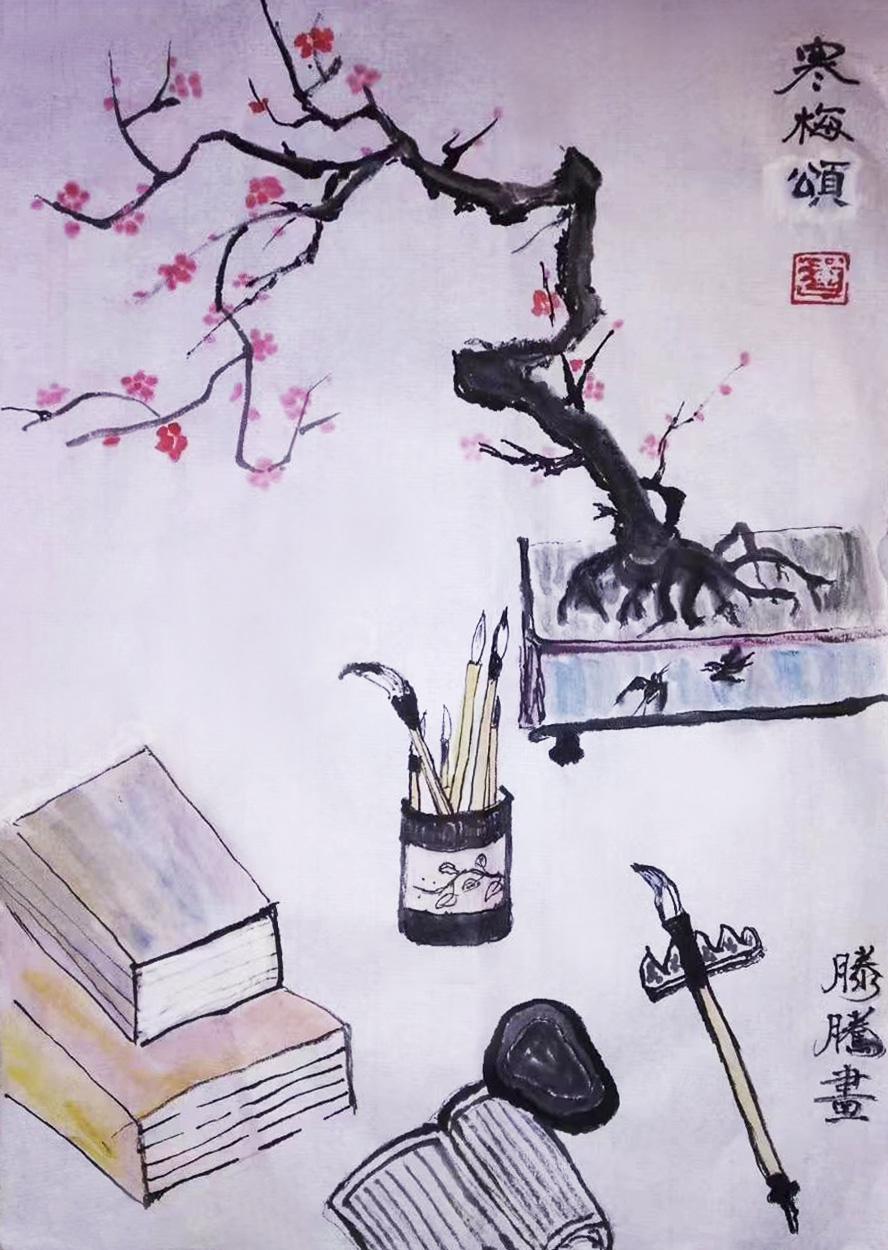 寒梅頌
滕騰畫